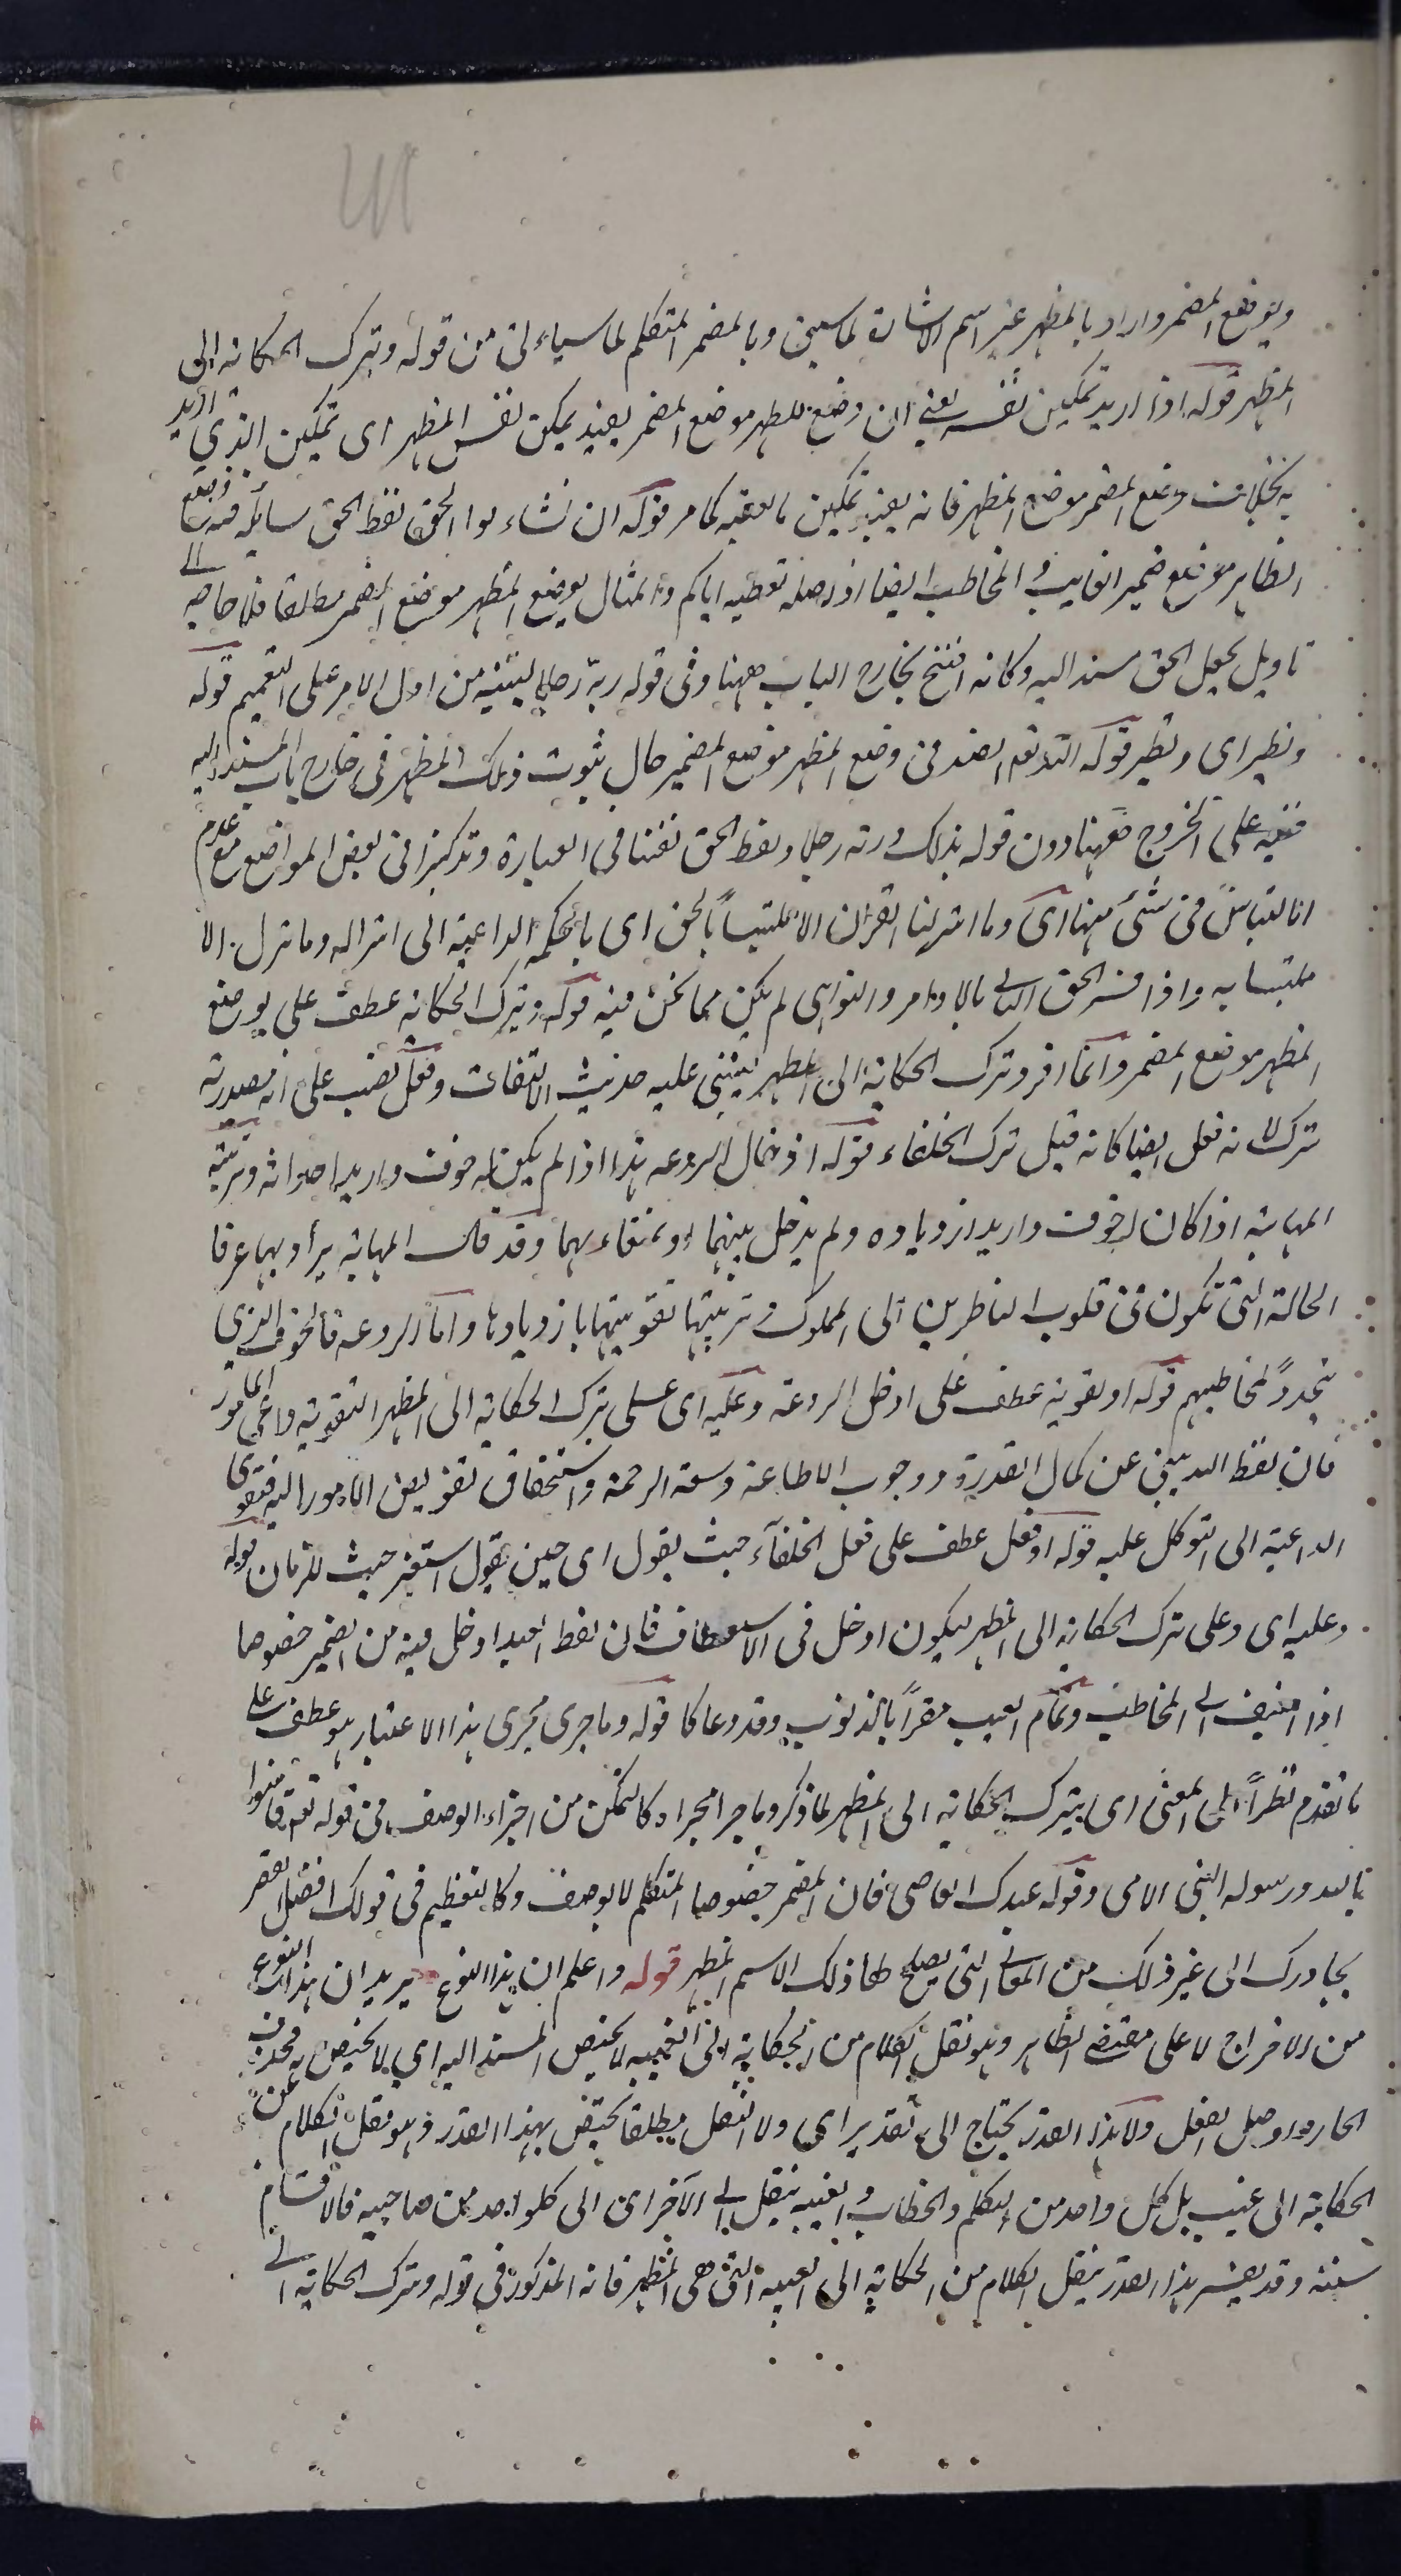 ويوضع المضمر واراد بالمظهر غير اسم الاشارة لما سبق وبالمضمر المتكلم لما سياتى من قوله وتترك الحكاية الى
المظهر قوله اذا اريد تمكين نفسه يعنى ان وضع المظهر موضع المضمر يفيد تمكين نفس المظهر اى تمكين الذي اريد
به بخلاف وضع المضمر موضع المظهر فانه يفيد تمكين ما يعقبه كما مر قوله ان نشاء لوا الحق لفظ الحق سائله فيه وضع
الظاهر موضع ضمير الغايب والمخاطب ايضا اذ اصله نعطيه اياكم والمثال لوضع المظهر موضع المضمر مطلقا فلا حاجة الى
تاويل يجعل الحق مسند اليه وكانه افتتح بخارج الباب ههنا وفى قوله ربه رجلا لينبه من اول الامر على التعميم قوله
ونظير اى ونظير قوله الله الصمد فى وضع المظهر موضع المضمر حال ثبوت ذلك المظهر فى خارج باب المسند اليه
فنبه على الخروج ههنا دون قوله هناك وربه رجلا ولفظ الحق تفننا فى العبارة وتذكيرا فى بعض المواضع مع عدم
الالتباس فى شئ منها اى وما انزلنا القران الا ملتبسا بالحق اى بالحكمة الداعية الى انزاله وما نزل الا
ملتبسا به واذا فسر الحق الثانى بالاوامر والنواهى لم يكن مما نحن فيه قوله وتترك الحكاية عطف على يوضع
المظهر موضع المضمر وانما افرد ترك الحكاية الى المظهر ليبتنى عليه حديث الالتفات وفعل نصب على انه مصدر
ترك لانه فعل ايضا كانه قيل ترك الخلفاء قوله ادخال الروعة هذا اذا لم يكن له خوف واريد احداثه وتربية
المهابة اذا كان له خوف واريد ازدياده ولم يدخل بينهما او لتقاربهما وقد قال المهابة يراد بها عرفا
الحالة التى تكون فى قلوب الناظرين الى الملوك وتربيتها تقويتها بازديادها واما الروعة فالخوف الذي
يتجدد لمخاطبهم قوله او تقوية عطف على ادخال الروعة وعليه اى على ترك الحكاية الى المظهر لتقوية داعى المامور
فان لفظ الله ينبئ عن كمال القدرة ووجوب الاطاعة وسعة الرحمة واستحقاق تفويض الامور اليه فتقوى
الداعية الى التوكل عليه قوله او فعل عطف على فعل الخلفاء حيث يقول اى حين يقول استعير حيث للزمان قوله
وعليه اى وعلى ترك الحكاية الى المظهر ليكون ادخل فى الاستعطاف فان لفظ العبد ادخل فيه من الضمير خصوصا
اذا اضيف الى المخاطب وتمام البيت مقرا بالذنوب وقد دعاكا قوله وما جرى مجرى هذا الاعتبار هو عطف على
ما تقدم نظرا الى المعنى اى يترك الحكاية الى المظهر لما ذكر وما جرا مجراه كالتمكن من اجراء الوصف فى قوله تع فآمنوا
بالله ورسوله النبى الامى وقوله عبدك العاصى فان المضمر خصوصا المتكلم لا يوصف وكالتعظيم فى قولك افضل العصر
يجاورك الى غير ذلك من المعانى التى يصلح لها ذلك الاسم المظهر قوله واعلم ان هذا النوع يريد ان هذا النوع
من الاخراج لا على مقتضى الظاهر وهو نقل الكلام من الحكاية الى الغيبة لا يختص المسند اليه اى لا يختص به فحذف
الجار واوصل الفعل ولا هذا القدر يحتاج الى تقدير اى ولا النقل مطلقا يختص بهذا القدر وهو نقل الكلام عن
الحكاية الى غيب بل كل واحد من التكلم والخطاب والغيبة ينقل الى الآخر اى الى كل واحد من صاحبيه فالاقسام
ستة وقد يفسر هذا القدر بنقل الكلام من الحكاية الى الغيبة التى هى المظهر فانه المذكور فى قوله وتترك الحكاية الى